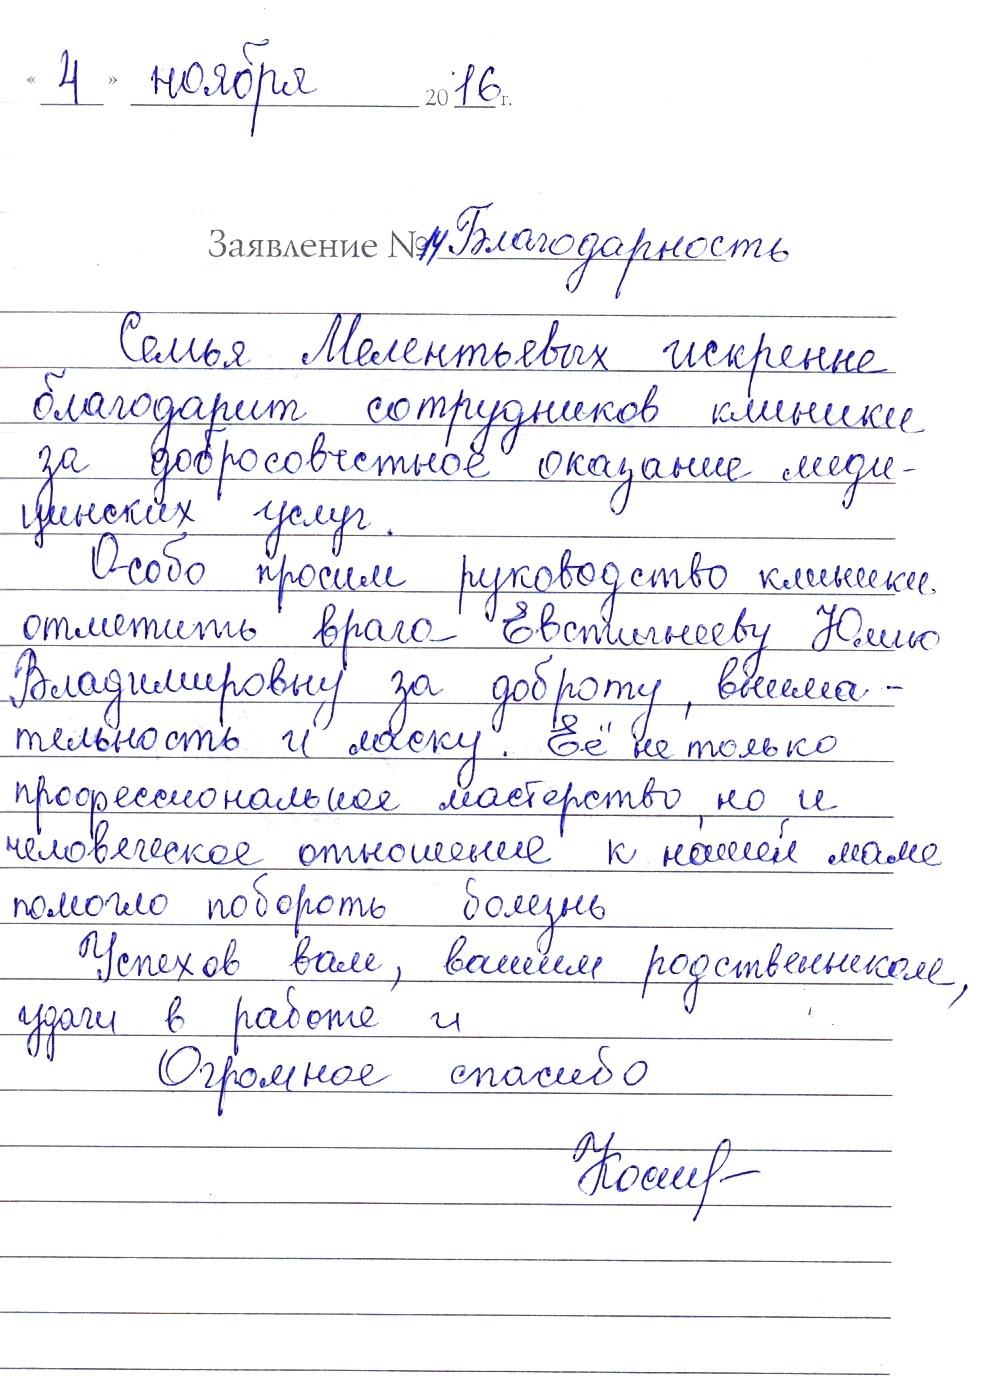 « 4 » ноября 2016 г.
Заявление №14 Благодарность
Семья Мелентьевых искренне
благодарит сотрудников клиники
за добросовестное оказание меди-
цинских услуг.
Особо просим руководство клиники
отметить врача Евстигнееву Юлию
Владимировну за доброту, внима-
тельность и ласку. Её не только
профессиональное мастерство, но и
человеческое отношение к нашей маме
помогло побороть болезнь
Успехов вам, вашим родственникам,
удачи в работе и
Огромное спасибо